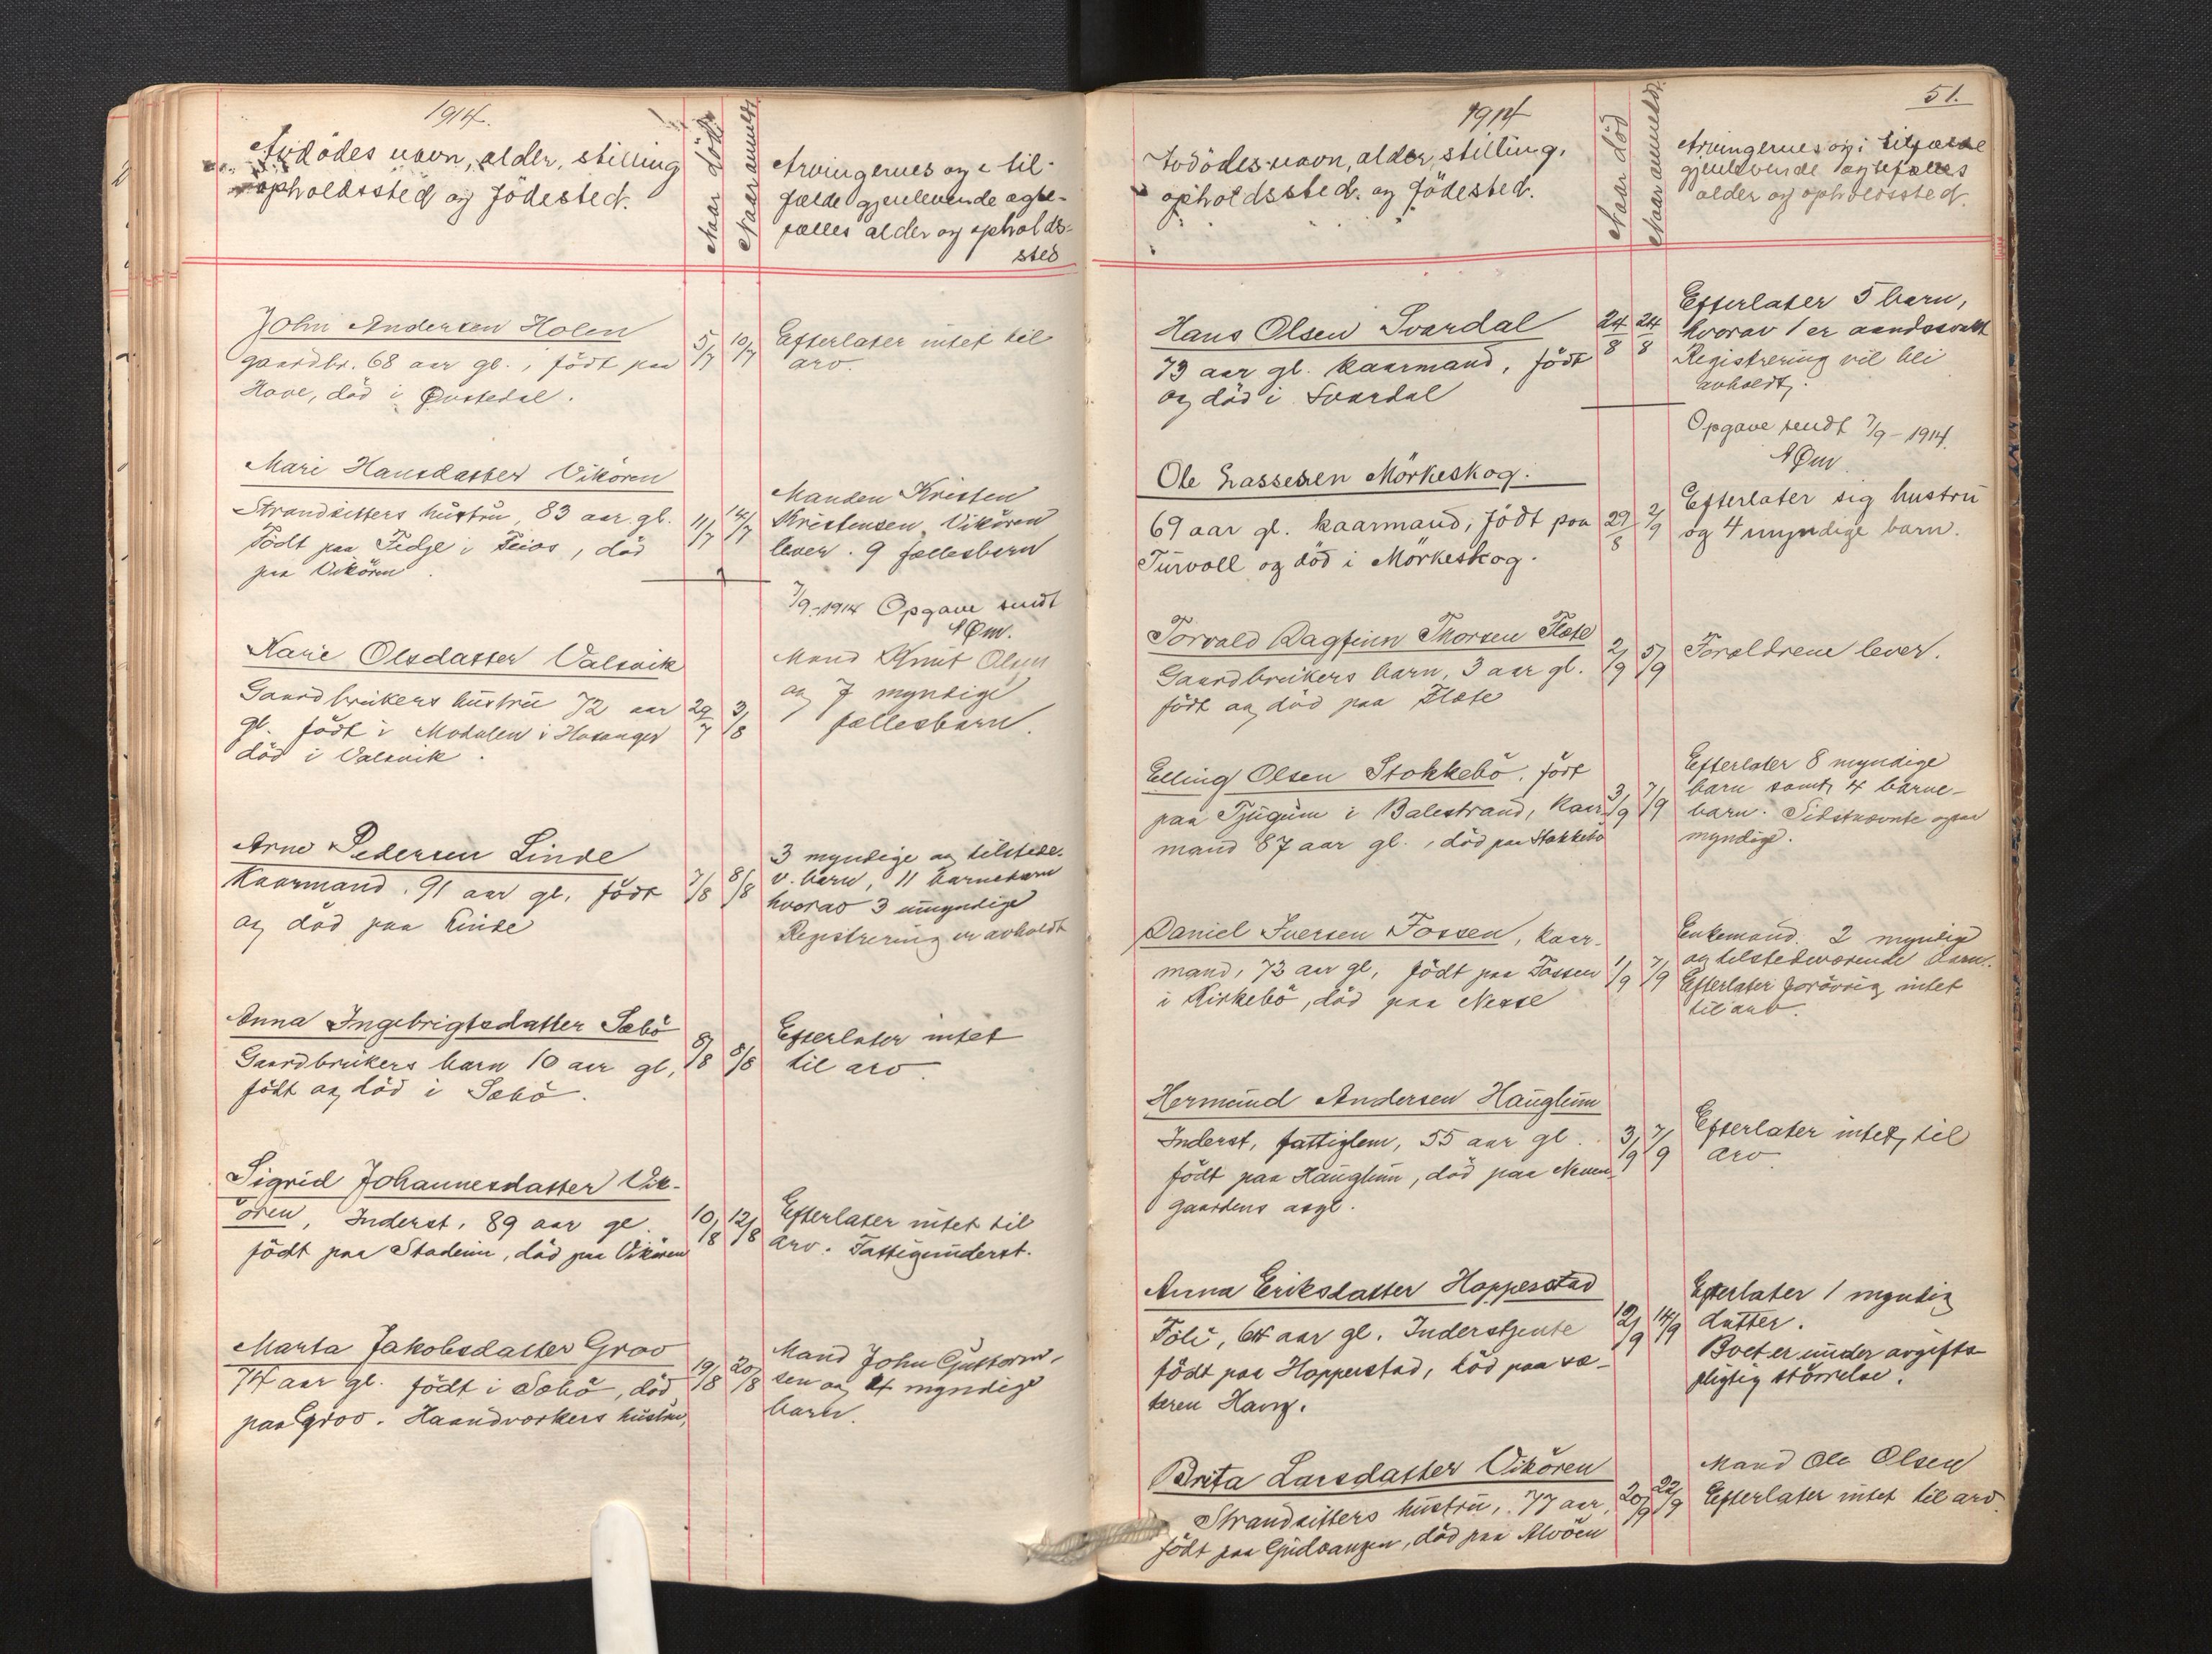 1914.
Avdödes navn, alder, stilling
opholdssted og födested.
Naar död
Naar anmeldt
Arvingernes og i til-
fælde gjenlevende ægte-
fælles alder og opholds-
sted
John Andersen Holen
gaardbr. 68 aar gl., födt paa
Hove, död i Øvstedal.
5/7
10/7
Efterlater intet til
arv.
Mari Hansdatter Vikören
Strandsitters hustru, 83 aar gl.
Födt paa Fedje i Feios, död
paa Vikören.
11/7
14/7
Manden Kristen
Kristensen Vikören
lever. 9 fællesbarn
7/9-1914 Opgave sendt
AØm.
Kari Olsdatter Valsvik
Gaardbrukers hustru 72 aar
gl. födt i Modalen i Hosanger
död i Valsvik.
29/7
3/8
Mand Knut Olsen
og 7 myndige
fællesbarn.
Arne Pedersen Linde
Kaarmand. 91 aar gl. födt
og död paa Linde
7/8
8/8
3 myndige og tilstede-
v. barn, 11 barnebarn
hvorav 3 umyndige
Registrering er avholdt
Anna Ingebrigtsdatter Sæbö
Gaardbrukers barn 10 aar gl,
födt og död i Sæbö.
8/8
8/8
Efterlater intet
til arv.
Sigrid Johannesdatter Vik-
ören, Inderst, 89 aar gl.
födt paa Stadeim, död paa Vikören
10/8
12/8
Efterlater intet til
arv. Fattiginderst.
Marta Jakobsdatter Grov
74 aar gl. födt i Sæbö, död
paa Grov. Haandverkers hustru,
19/8
20/8
Mand John Guttorm-
sen og 4 myndige
barn.
1914
51.
Avdödes navn, alder, stilling,
opholdssted. og födested.
Naar död
Naar anmeldt.
Arvingernes og i tilfælde
gjenlevende ægtefælles
alder og opholdssted.
Hans Olsen Svardal
73 aar gl. kaarmand, födt
og död i Svardal
24/8
24/8
Efterlater 5 barn,
hvorav 1 er aandssvakt
Registrering vil bli
avholdt.
Opgave sendt 7/9-1914.
AØm
Ole Lassesen Mörkeskog.
69 aar gl. kaarmand, födt paa
Turvoll og död i Mörkeskog.
29/8
2/9
Efterlater sig hustru
og 4 myndige barn.
Torvald Dagfinn Thorsen Flete
Gaardbrukers barn, 3 aar gl.
födt og död paa Flete
2/9
5/9
Forældrene lever.
Elling Olsen Stokkebö, födt
paa Tjugum i Balestrand, kaar-
mand 87 aar gl., död paa Stokkebö
3/9
7/9
Efterlater 8 myndige
barn samt 4 barne-
barn. Sidstnævnte ogsaa
myndige.
Daniel Iversen Fossen, kaar-
mand, 72 aar gl, födt paa Fossen
i Kirkebö, död paa Nesse
1/9
7/9
Enkemand. 2 myndige
og tilstedeværende barn.
Efterlater forövrig intet
til arv.
Hermund Andersen Hauglum
Inderst, fattiglem, 55 aar gl.
födt paa Hauglum, död paa Neven-
gaardens asyl.
3/9
7/9
Efterlater intet til
arv.
Anna Eriksdatter Hopperstad
Föli, 64 aar gl. Inderstjente
födt paa Hopperstad, död paa sæ-
teren Haug.
12/9
14/9
Efterlater 1 myndig
datter.
Boet er under avgifts-
pligtig störrelse.
Brita Larsdatter Vikören
Strandsitters hustru, 77 aar,
födt paa Gudvangen, död paa Alvöen
20/9
22/9
Mand Ole Olsen
Efterlater intet til arv.